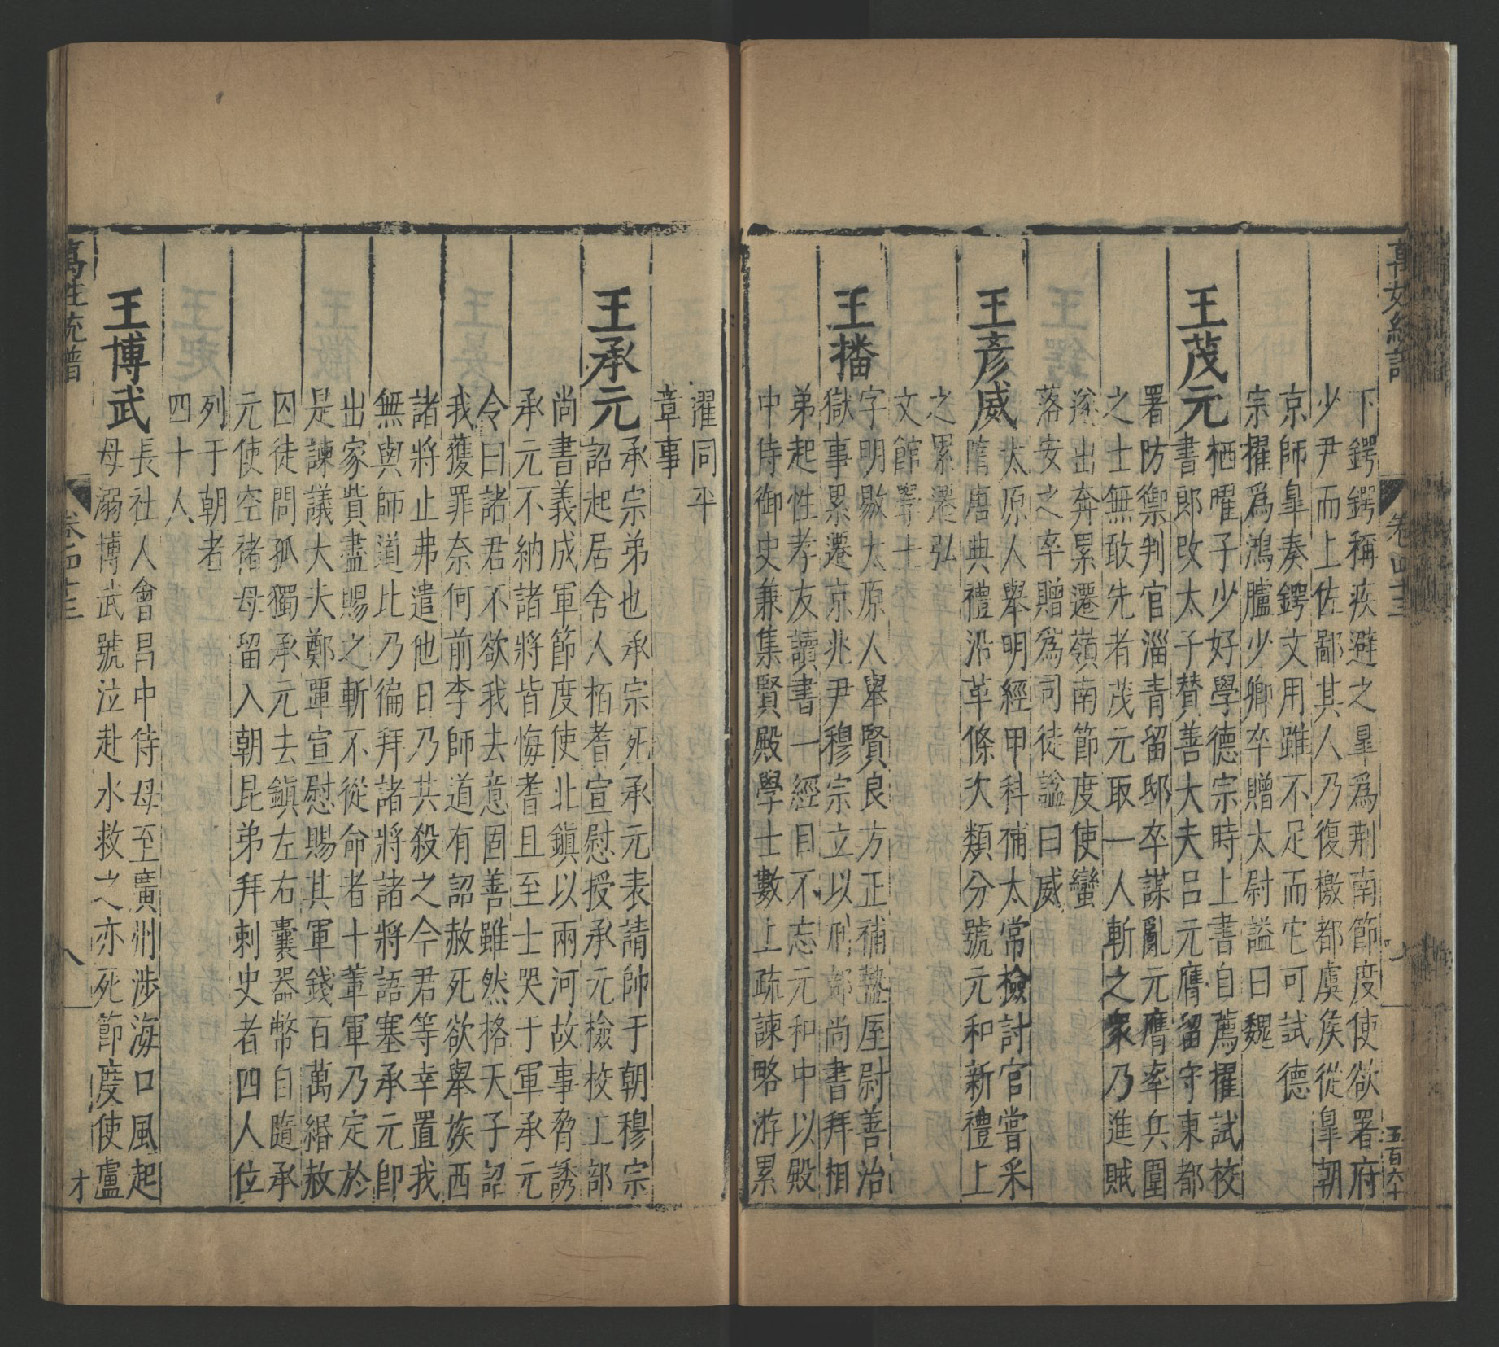 下鍔鍔稱疾避之臯爲荆南節度使欲署府
少尹而上佐鄙其人乃復檄都虞侯從臯朝
京師臯奏鍔文用雖不足而它可試德
宗擢爲鴻臚少卿卒贈太尉謚曰魏
王茂元
栖曜子少好學德宗時上書自薦擢試校
書郎改太子贊善大夫呂元膺留守東都
署防禦判官淄青留邸卒謀亂元膺率兵圍
之士無敢先者茂元取一人斬之衆乃進賊
出奔累遷嶺南節度使蠻
落安之卒贈爲司徒謚曰威
王彥威
太原人舉明經甲科補太常檢討官嘗采
隋唐典禮沿革條次類分號元和新禮上
之累遷弘
文館學士
王播
字明敭太原人舉賢良方正補盩厔尉善治
獄事累遷京兆尹穆宗立以刑部尚書拜相
弟起性孝友讀書一經目不忘元和中以殿
中侍御史兼集賢殿學士數上疏諫略游累
濯同平
章事
王承元
承宗弟也承宗死承元表請帥于朝穆宗
詔起居舍人栢耆宣慰授承元檢校工部
尚書義成軍節度使北鎮以兩河故事脅誘
承元不納諸將皆悔耆且至士哭于軍承元
令曰諸君不欲我去意固善雖然格天子詔
我獲罪奈何前李師道有詔赦死欲舉族西
諸將止弗遣他日乃共殺之今君等幸置我
無與師道比乃徧拜諸將諸將語塞承元卽
出家貲盡賜之斬不從命者十輩軍乃定於
是諫議大夫鄭覃宣慰賜其軍錢百萬緡赦
囚徒問孤獨承元去鎮左右橐器幣自隨承
元使空褚母留入朝昆弟拜刺史者四人位
列于朝者
四十人
王博武
長社人會昌中侍母至廣州涉海口風起
母溺博武號泣赴水救之亦死節度使盧
萬姓統譜
卷四十三
八
才